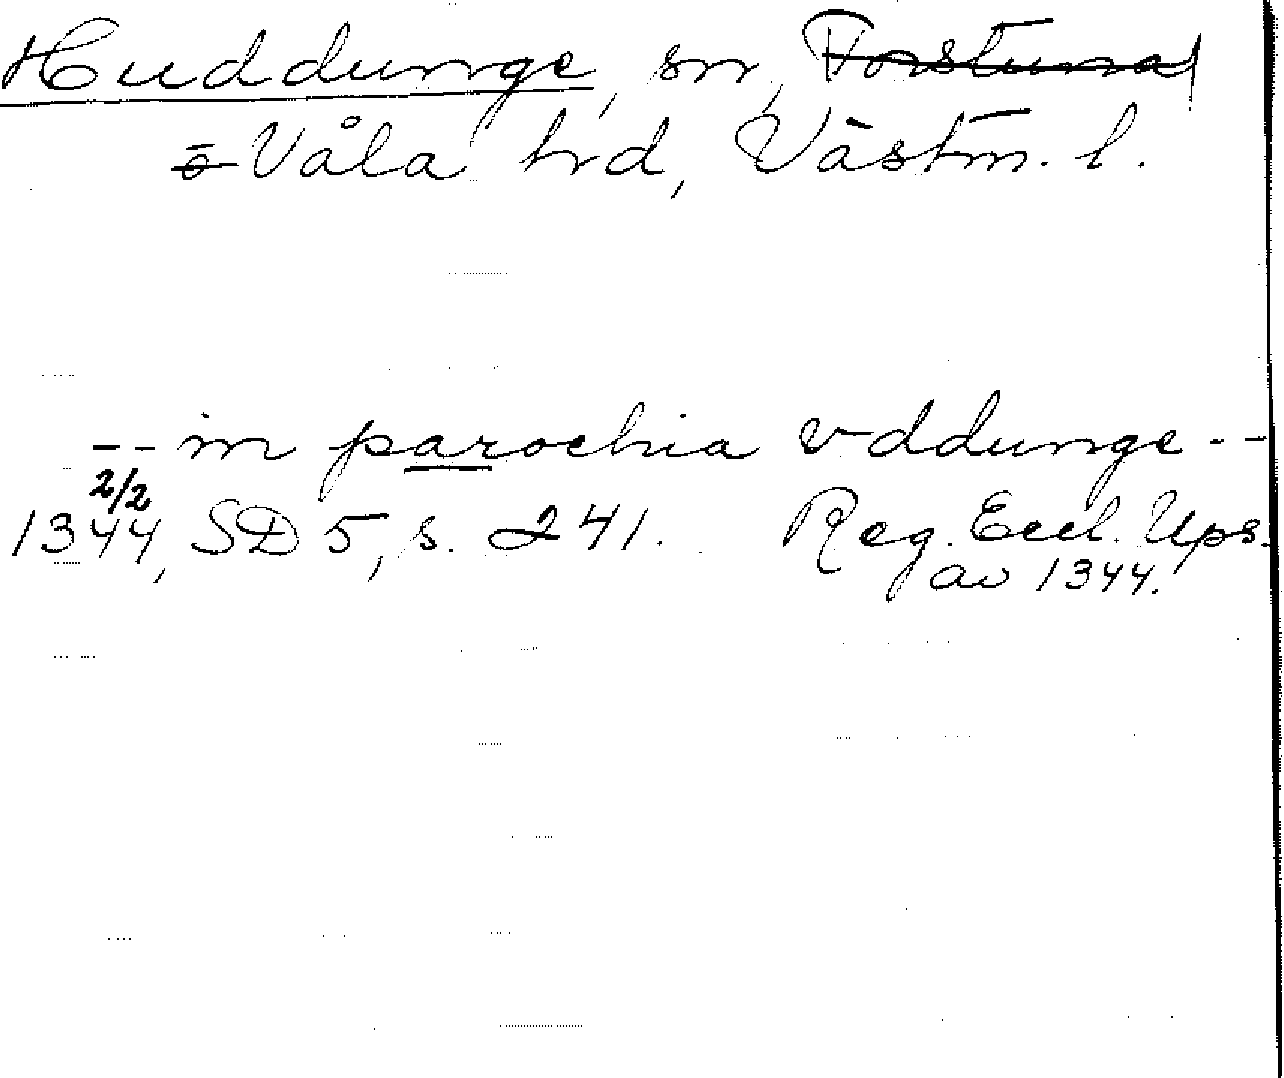 Huddunge, sn, Torstuna
o Våla hd, Västm. l.
-- in parochia vddunge --
2/2
1344, SD 5, s. 241. Reg. Eccl. Ups.
av 1344.